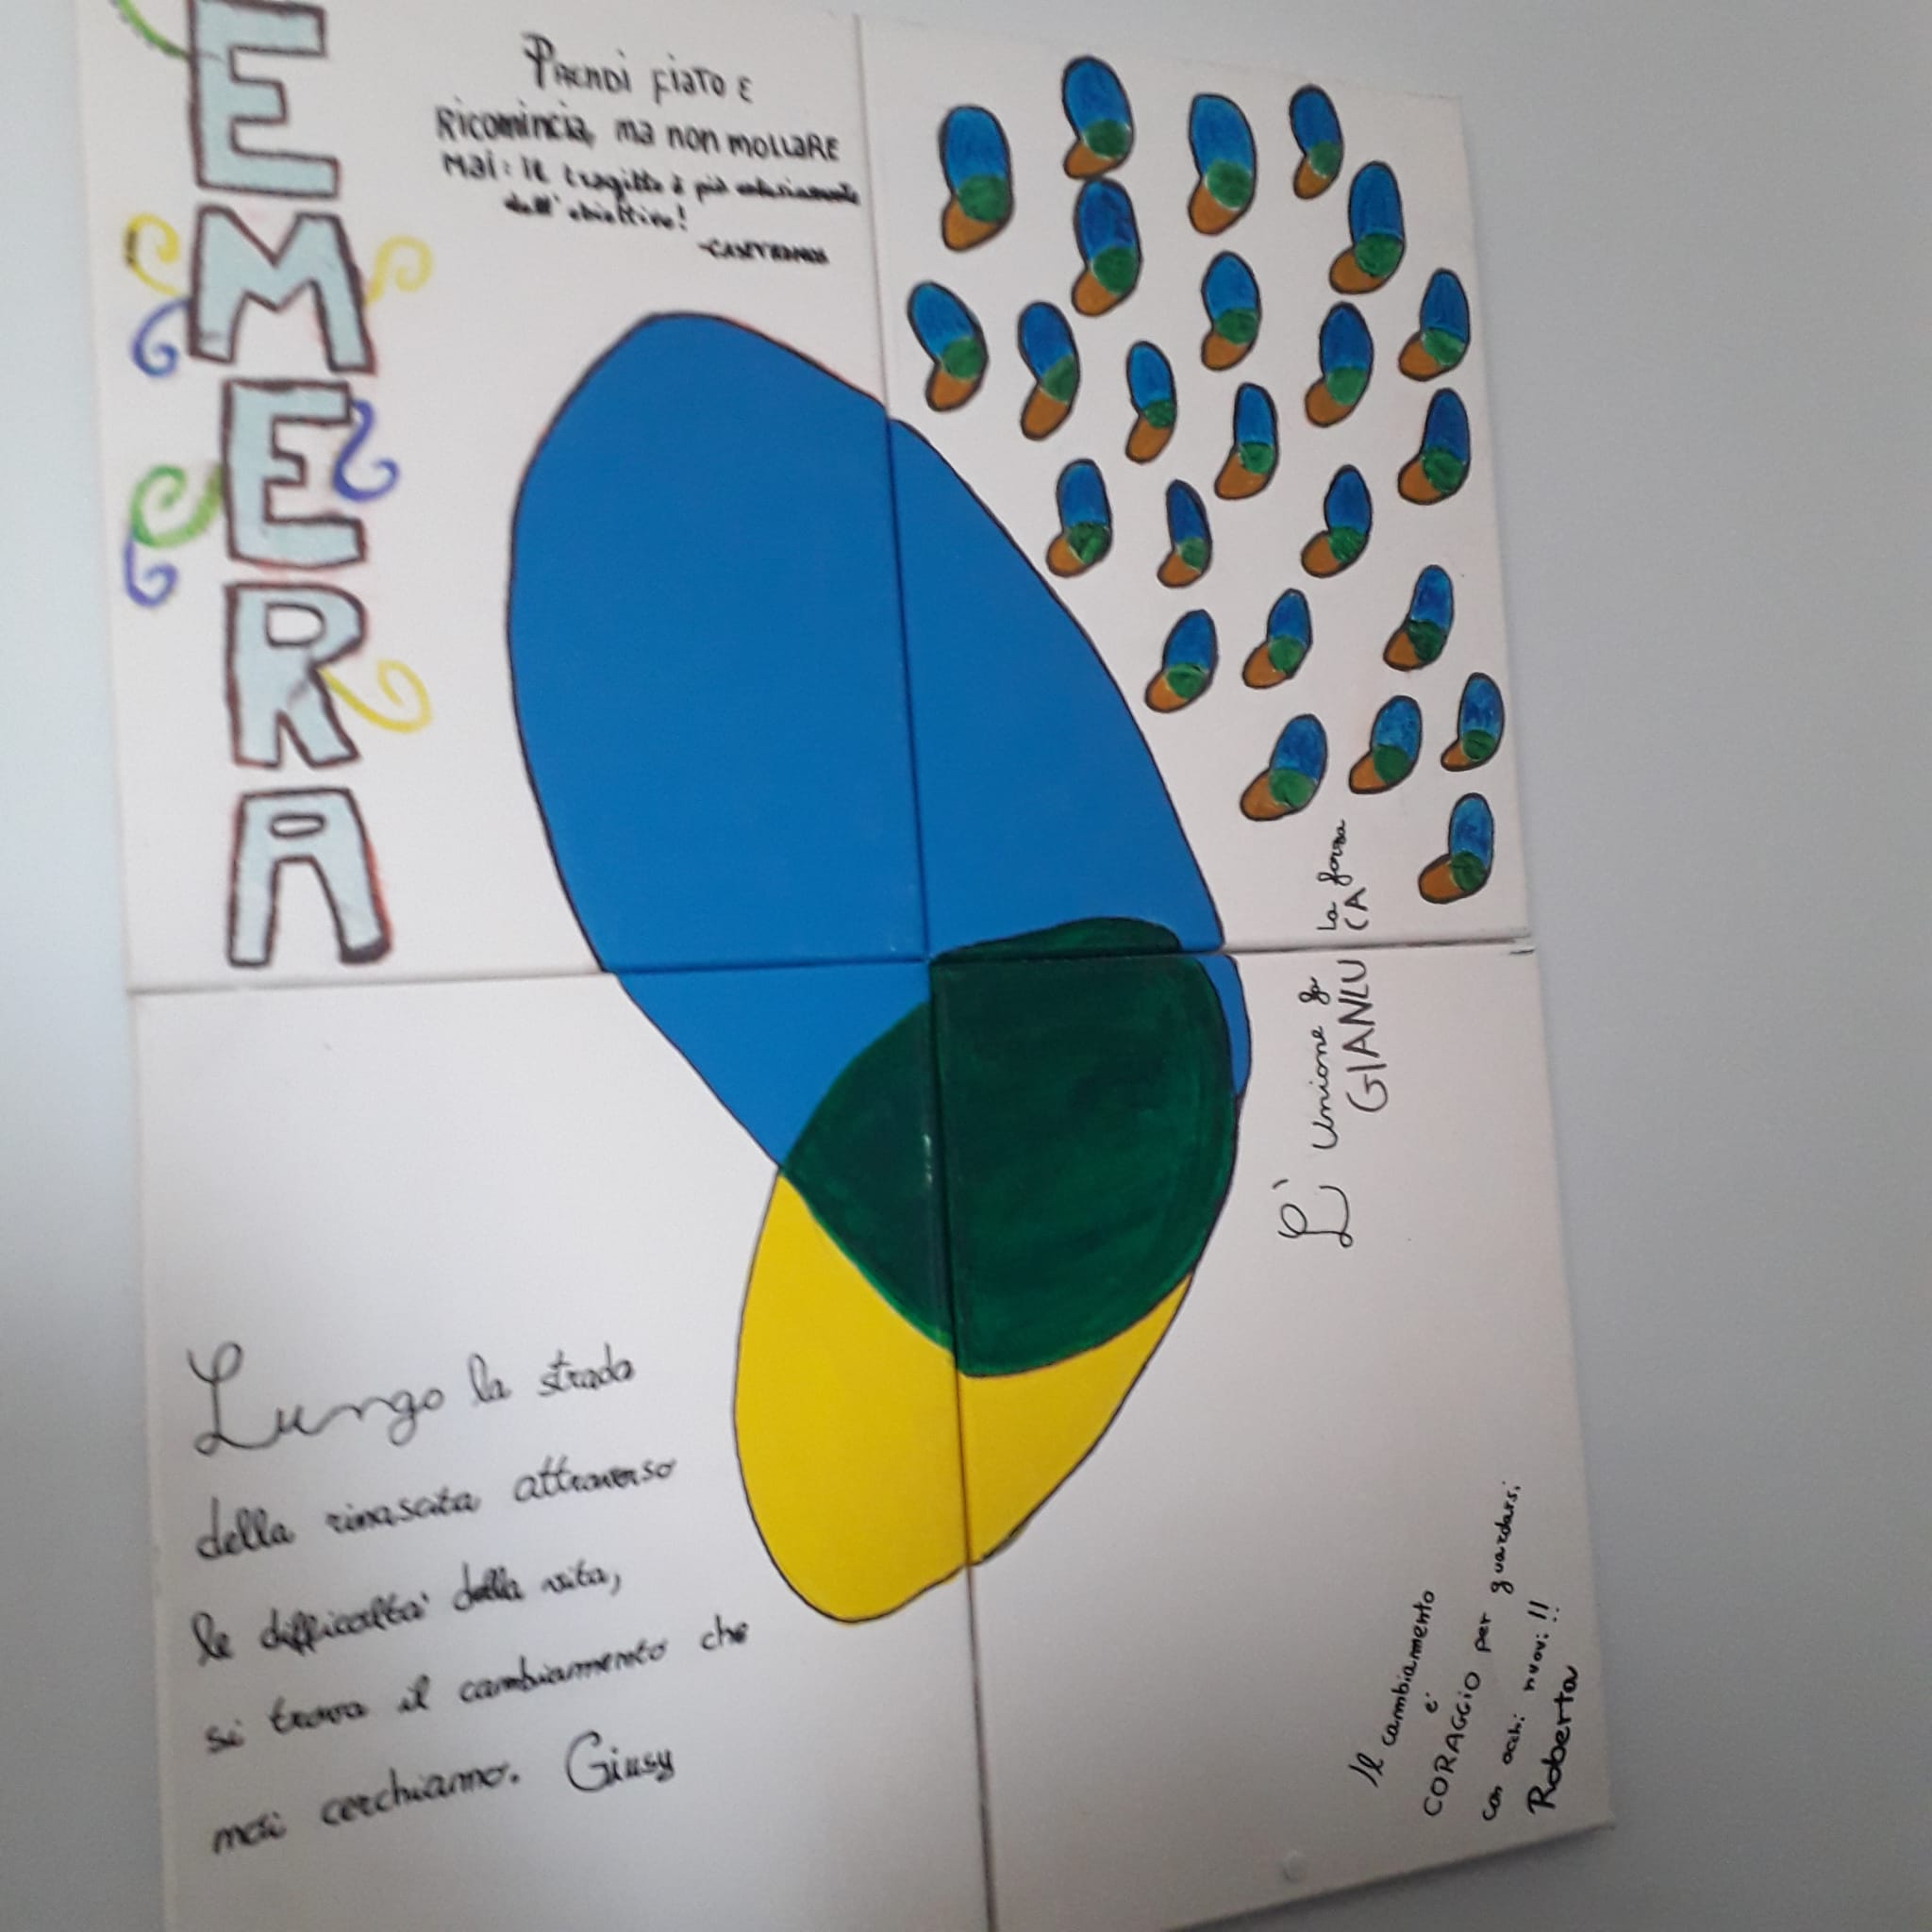 EMERA
Prendi fiato e
Ricomincia, ma non mollare
Mai: Il tragitto è più
dell' obiettivo!
Lungo la strada
della rinascita attraverso
le difficolta' della vita,
si trova il cambiamento che
noi cerchiamo. Giusy
L' unione fa la forza
GIANLUCA
Il cambiamento
e'
CORAGGIO per guardarsi
con occhi nuovi!!
Roberta